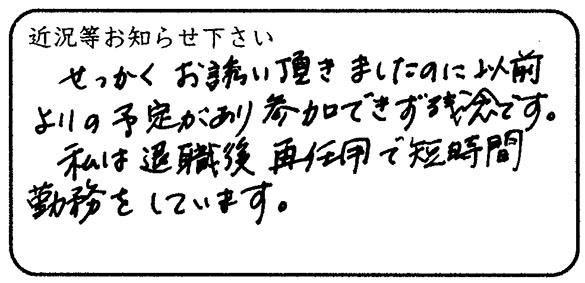 近況等お知らせ下さい
せっかくお誘い頂きましたのに以前
よりの予定があり参加できず残念です。
私は退職後再任用で短時間
勤務をしています。